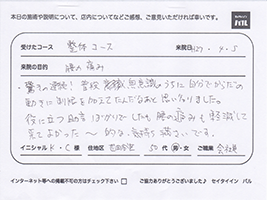 本日の施術や説明について、店内についてなどご感想、ご意見いただければ幸いです。
受けたコース 整体コース 来院日 H27.4.5
来院の目的 腰の痛み
驚きの連続！ 普段 無意識のうちに自分でからだの
動きに制限を加えてたんだなあと思い知りました。
役に立つ助言ばかりでしたし、腰の痛みも軽減して
来てよかった〜 的な 気持ち満々です。
イニシャル K・C 様 住地区 50代 男・女 ご職業 会社員
インターネット等への掲載不可の方はチェック下さい □ ◎ご協力ありがとうございました♪ セイタイイン パル